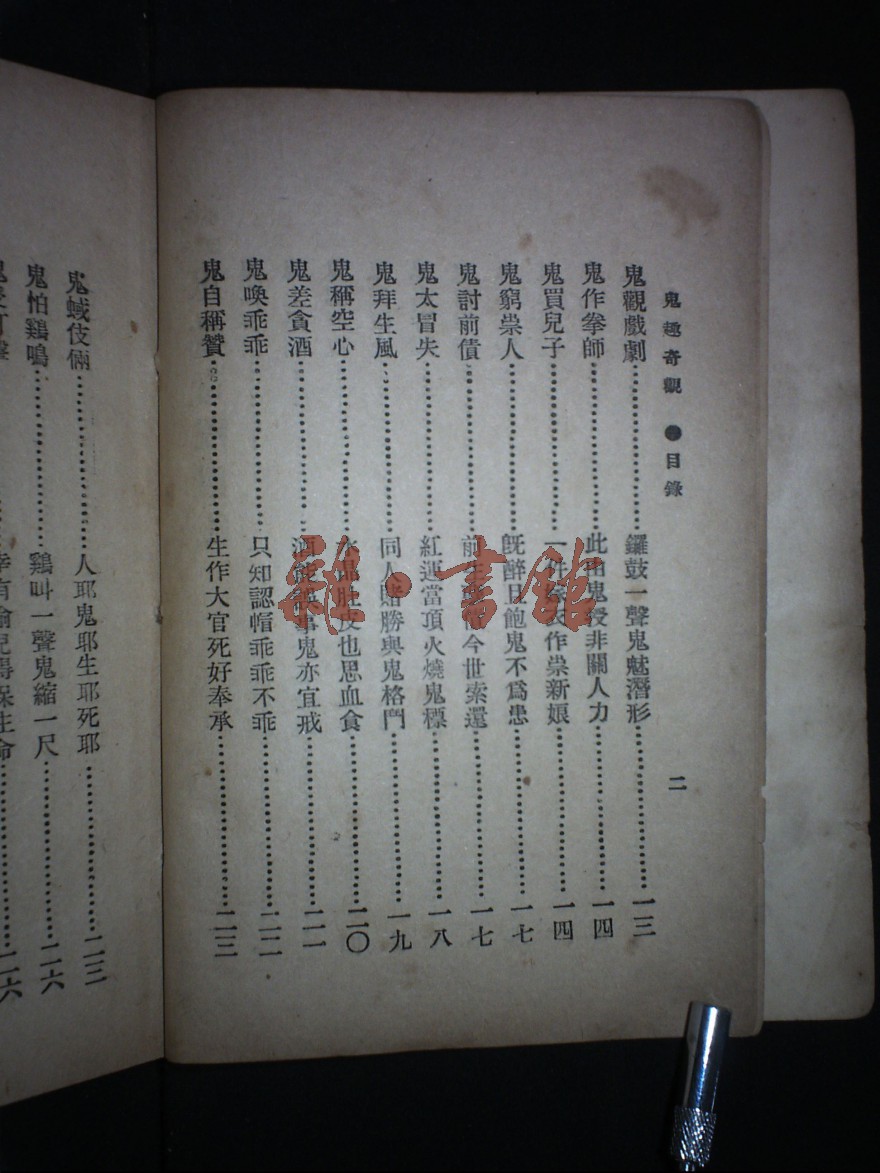 鬼趣奇觀 ●目錄 二
鬼觀戲劇 鑼鼓一聲鬼魅潛形 一三
鬼作拳師 此由鬼授非關人力 一四
鬼買兒子 一件 衣作祟新娘 一四
鬼窮祟人 既醉且飽鬼不爲患 一七
鬼討前債 前生 今世索還 一七
鬼太冒失 紅運當頂火燒鬼標 一八
鬼拜生風 同人賭勝與鬼格鬥 一九
鬼稱空心 水晶肚皮也思血食 二〇
鬼差貪酒 酒能誤事鬼亦宜戒 二一
鬼喚乖乖 只知認帽乖乖不乖 二二
鬼自稱贊 生作大官死好奉承 二三
鬼蜮伎倆 人耶鬼耶生耶死耶 二三
鬼怕鷄鳴 鷄叫一聲鬼縮一尺 二六
保生命 二六
雜·書館